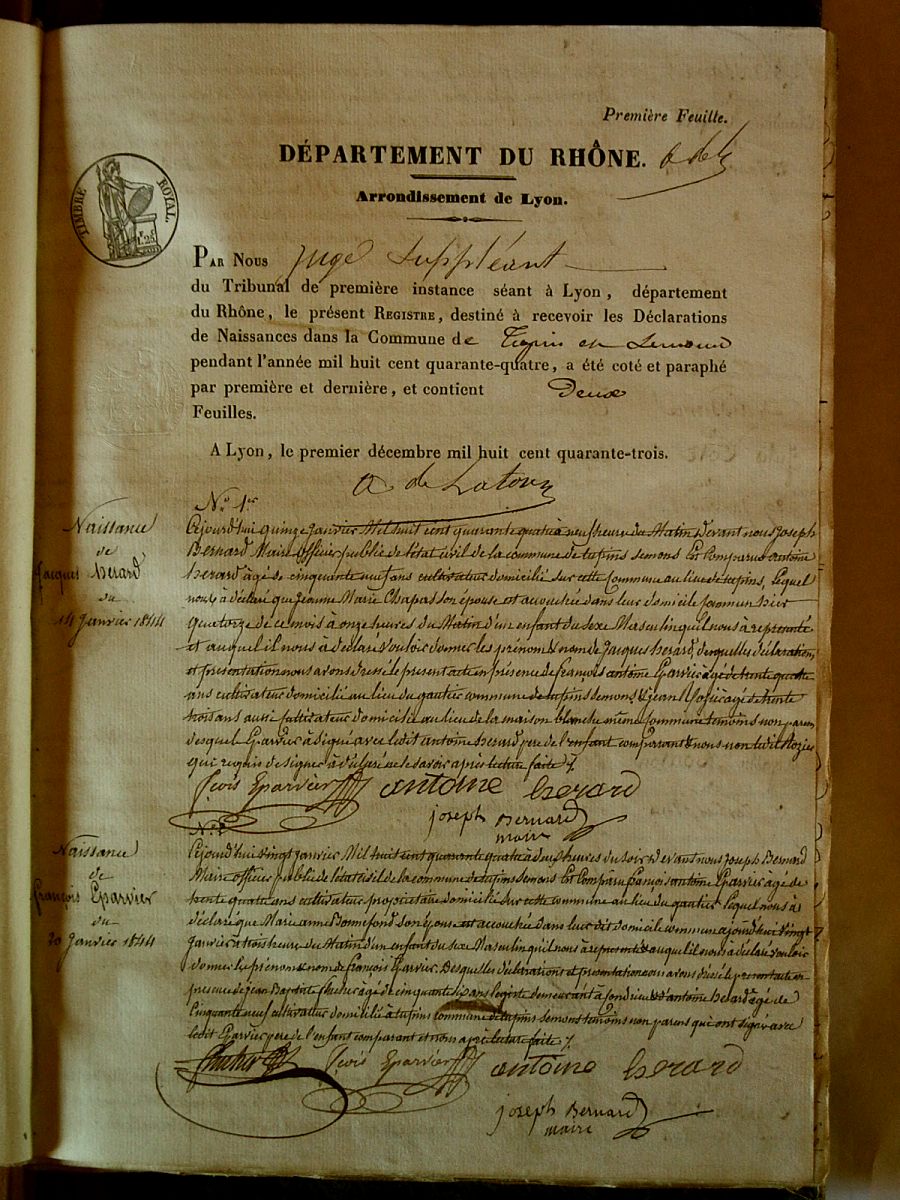 Première Feuille.
DÉPARTEMENT DU RHÔNE.
Arrondissement de Lyon.
TIMBRE ROYAL.
1F.25
PAR NOUS juge Suppléant
du Tribunal de première instance séant à Lyon, département
du Rhône, le présent REGISTRE, destiné à recevoir les Déclarations
de Naissances dans la Commune de Tupin et Semons
pendant l'année mil huit cent quarante-quatre, a été coté et paraphé
par première et dernière, et contient Deux
Feuilles.
A Lyon, le premier décembre mil huit cent quarante-trois.
a de Latour
N.o 1.er
Naissance
de
Jacques herard
du
14 Janvier 1844
Cejourd'hui quinze Janvier Mil huit cent quarante quatre à neuf heure du Matin Devant nous Joseph
Bernard Maire officier public de l'état civil de la commune de tupins semons Est Comparu antoine
herard agé de cinquante neuf ans cultivateur domicilié sur cette Commune au lieu de tupins, lequel
nous à déclaré que Jeanne Marie Chapas son épouse est accouchée dans leur domicile commun hier
quatorze de ce mois à onze heures du Matin d'un enfant du sexe Masculin qu'il nous à représenté
et auquel il nous à déclaré vouloir donner les prénom & nom de Jacques herard, desquelles déclaration
et présentation nous avons dressé le présent acte en présence de françois antoine Eparvier agé de trente quatre
ans cultivateur domicilié au lieu du gautier commune de tupins semons & jean agé de trente
trois ans aussi cultivateur domicilié au lieu de la maison blanche même Commune temoins non parens
desquels Eparvier à signé avec ledit antoine herard pere de l'enfant comparant & nous non ledit Rozier
qui requis de signer à déclaré ne le savoir après lecture faite ./.
fçois Eparvier antoine herard
joseph Bernard
maire
N.o 2
Naissance
de
françois Eparvier
du
20 Janvier 1844
Cejourd'hui vingt janvier Mil huit cent quarante quatre à deux heures du soir devant nous Joseph Bernard
Maire officier public de l'état civil de la commune de tupins semons Est Comparu françois antoine Eparvier âgé de
trente quatre ans cultivateur propriétaire domicilié sur cette commune au lieu du gautier lequel nous à
déclaré que Marie anne Bonnefond son épouse est accouchée dans leur dit domicile commun ajourd'hui vingt
janvier à heure du Matin d'un enfant du sexe Masculin qu'il nous à représenté & auquel il nous à déclaré vouloir
donner les prénom & nom de françois Eparvier. Desquelles déclarations et présentation nous avons dressé le présent acte en
présence de jean Baptiste agé de cinquante ans demeurant à Condrieu & d'antoine herard agé de
Cinquante neuf cultivateur domicilié à tupins commune de tupins semons temoins non parens qui ont signé avec
ledit Eparvier pere de l'enfant comparant et nous après lecture faite ./.
fçois Eparvier antoine herard
joseph Bernard
maire